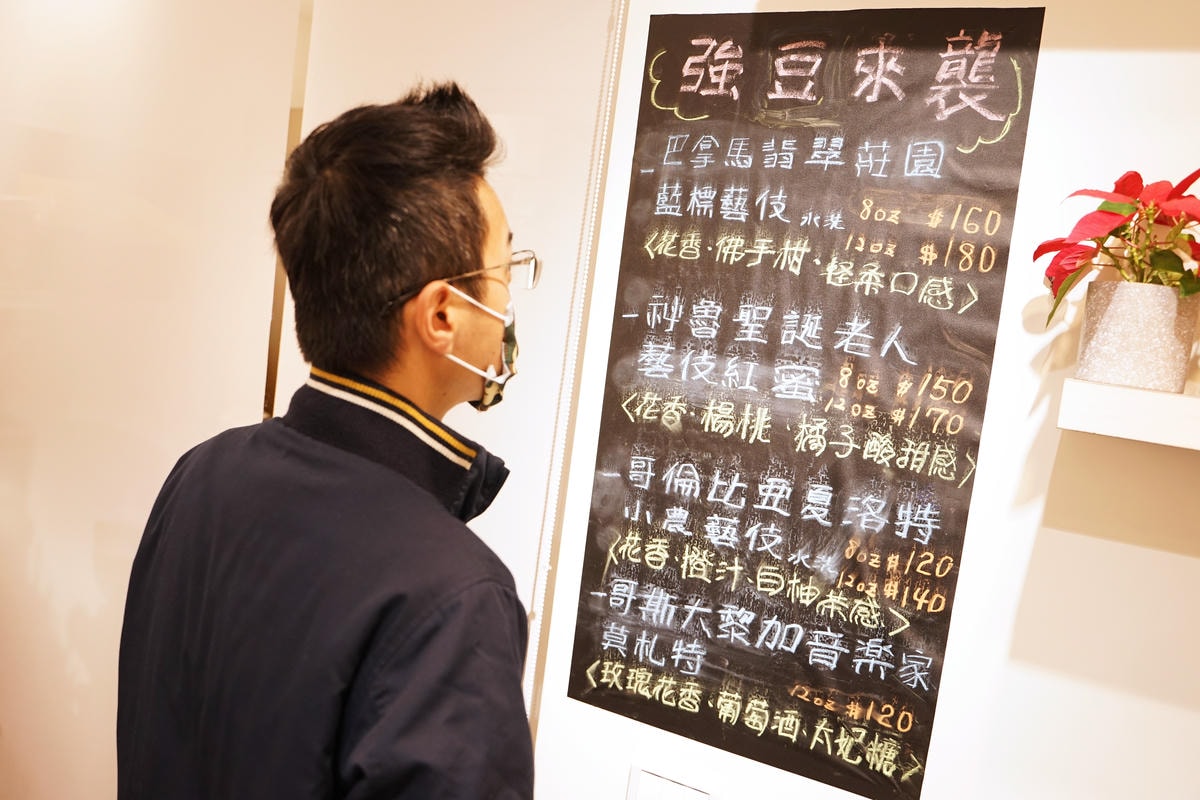 強豆來襲
-巴拿馬翡翠莊園
藍標藝伎 水洗 8oz $160
12oz $180
〈花香·佛手柑、輕柔口感〉
-祕魯聖誕老人
藝伎紅蜜 8oz $150
12oz $170
〈花香·楊桃·橘子酸甜感〉
-哥倫比亞夏洛特
小農藝伎 水洗 8oz $120
12oz $140
〈花香·橙汁·白柚茶感〉
-哥斯大黎加音樂家
莫札特
12oz $120
〈玫瑰花香·葡萄酒·太妃糖〉